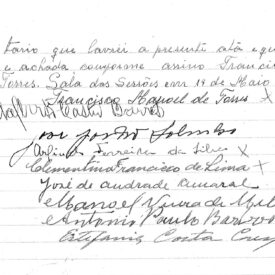 tario que lavrei a presente ata que
e achada conforme assino Francisco
Torres. Sala das Sessões em 14 de Maio
Francisco Manoel de Torres X
Castro
Arlindo Ferreira da Silva X
Clementina Francisco de Lima X
José de andrade amaral
Manoel Vieira de Mel
Antonio Paulo
Estefania Costa